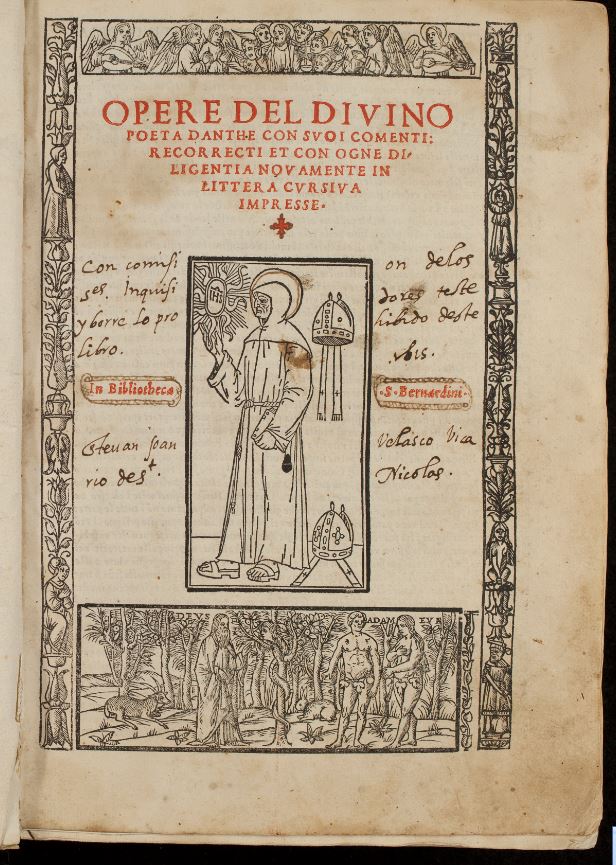 OPERE DEL DIVINO
POETA DANTHE CON SVOI COMENTI:
RECORRECTI ET CON OGNE DI-
LIGENTIA NOVAMENTE IN
LITTERA CVRSIVA
IMPRESSE.
IHS
Con comisi on de los
ses. Inquisi dores teste
y borre lo pro hibido deste
libro.
In Bibliotheca .S. Bernardini.
Estevan Joan Velasco Vica
rio des.t Nicolas.
DEVS ADAM EVA